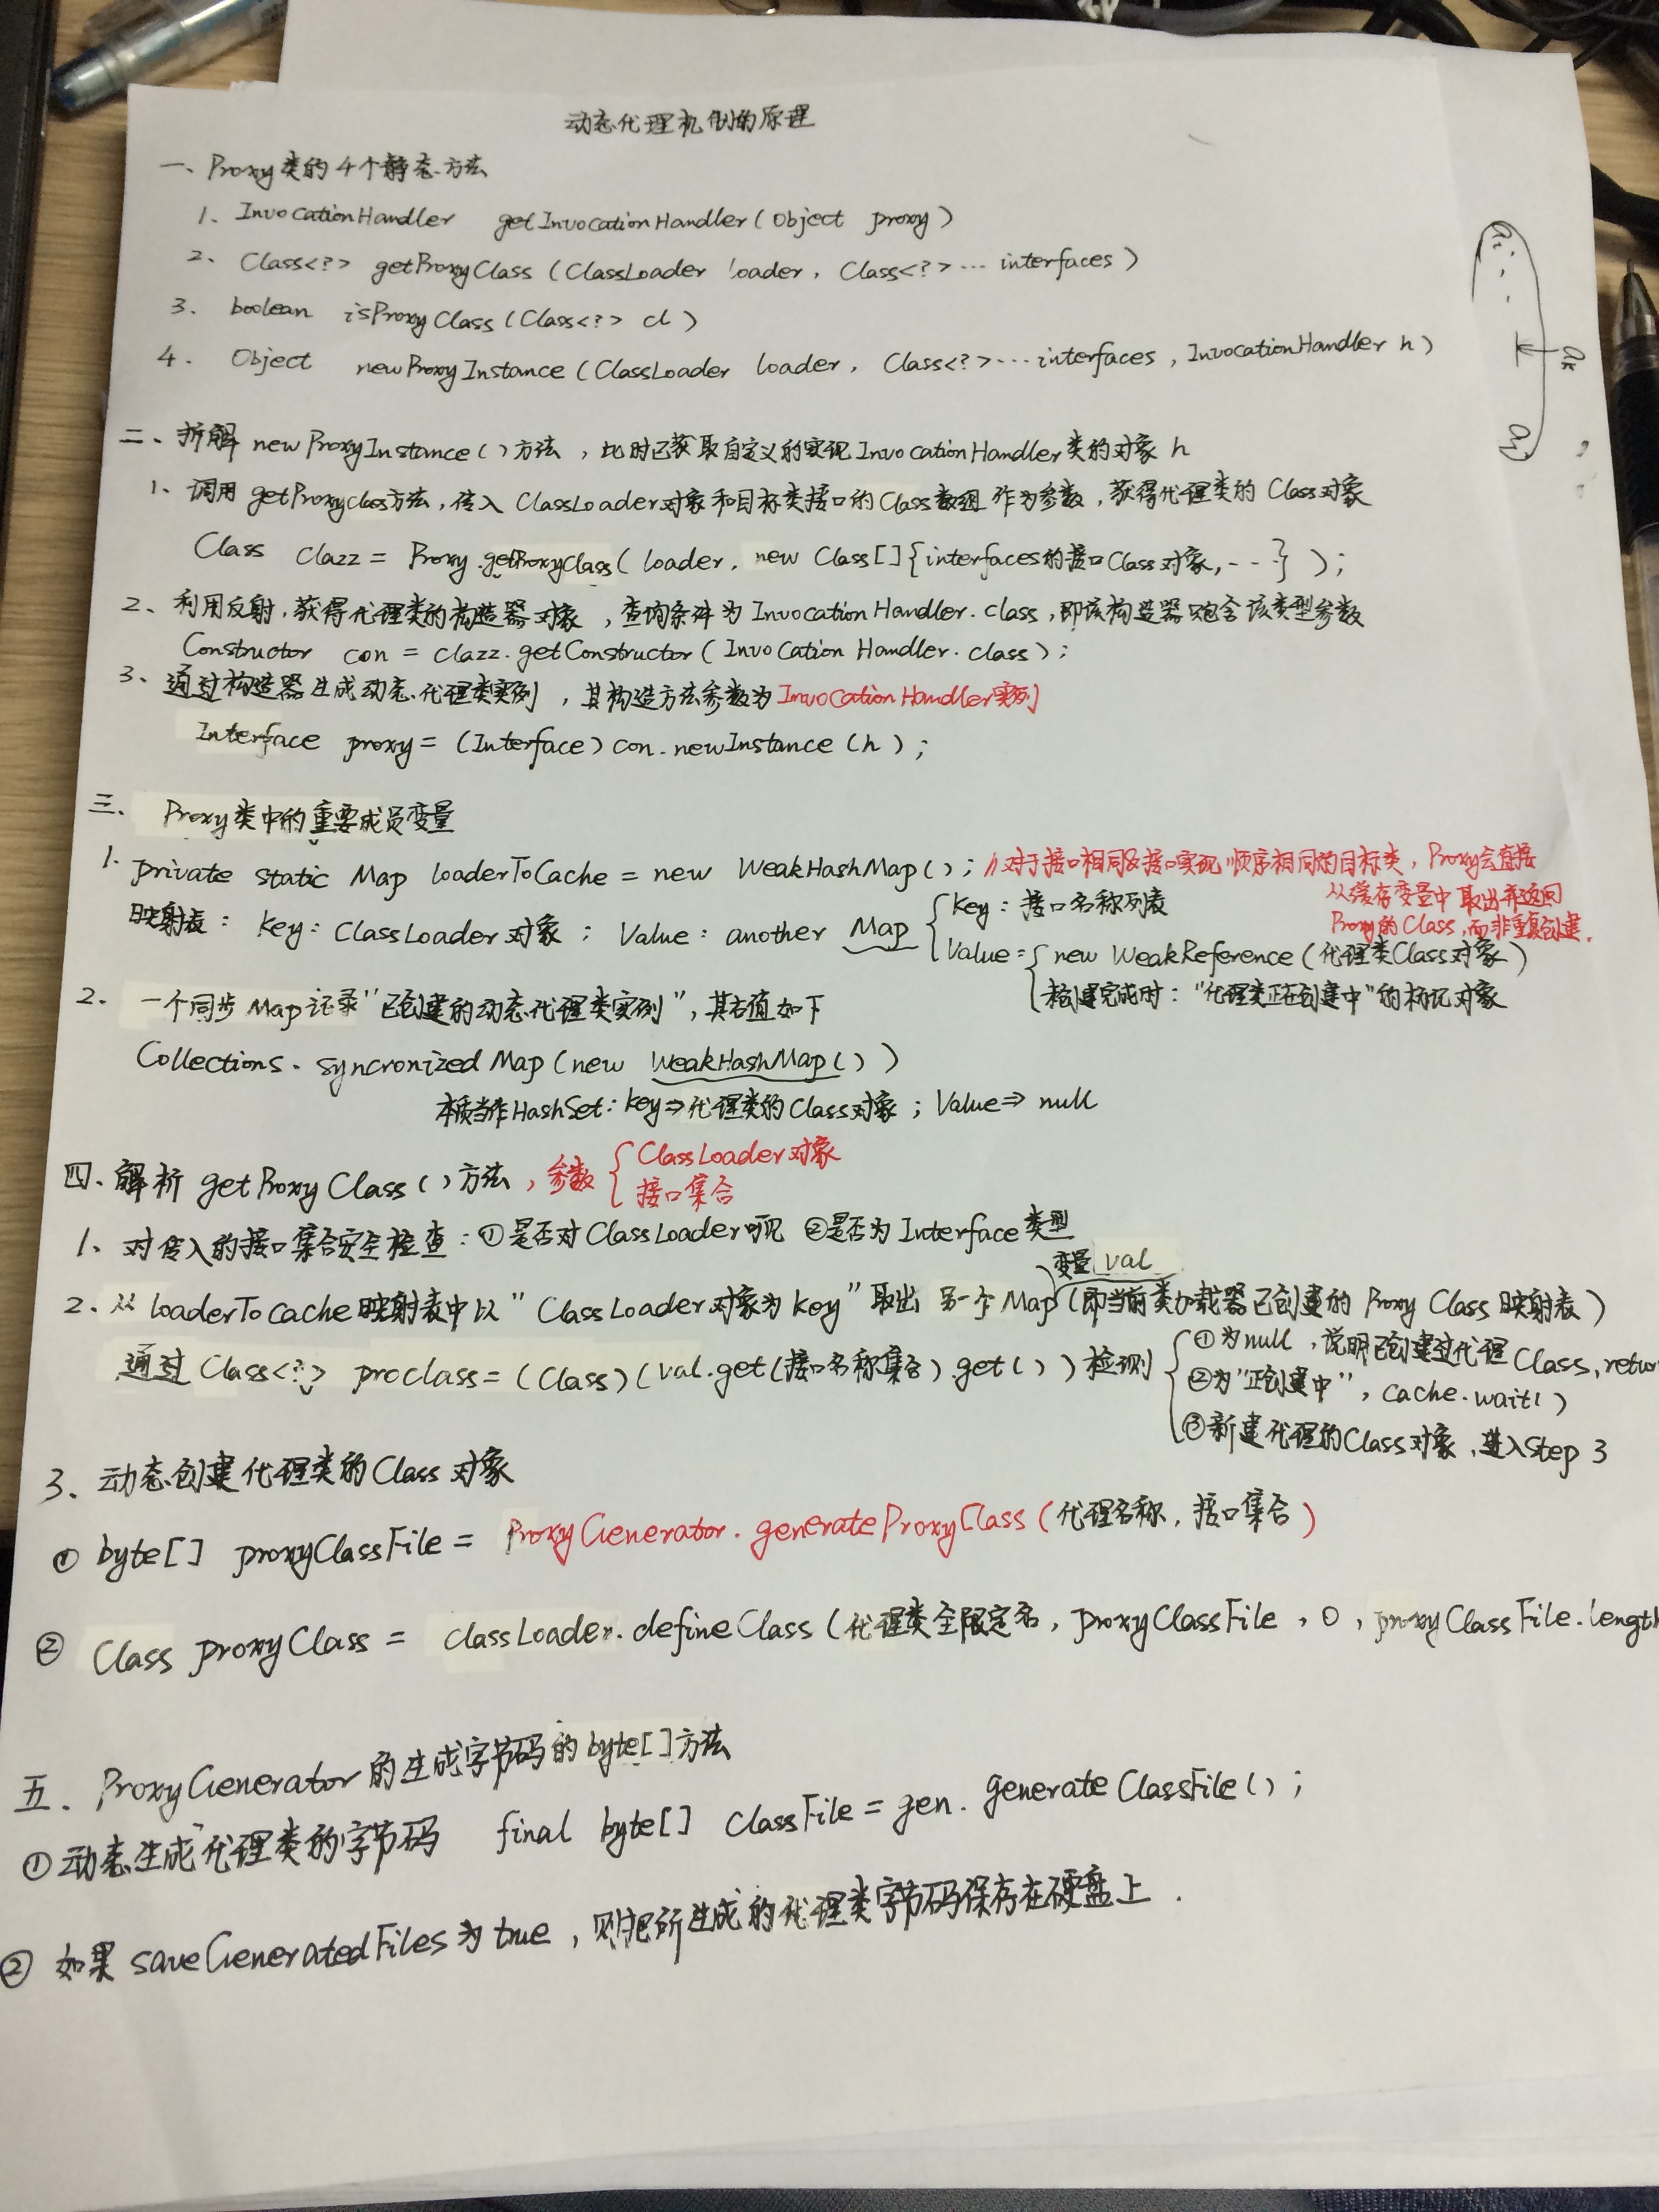 动态代理机制的原理
一、Proxy类的4个静态方法
1. InvocationHandler getInvocationHandler(Object proxy)
2. Class<?> getProxyClass(ClassLoader loader, Class<?>... interfaces)
3. boolean isProxyClass(Class<?> cl)
4. Object newProxyInstance(ClassLoader loader, Class<?>... interfaces, InvocationHandler h)
二、拆解 newProxyInstance()方法，此时已获取自定义的实现InvocationHandler类的对象h
1、调用getProxyclass方法，传入ClassLoader对象和目标类接口的Class数组作为参数，获得代理类的Class对象
Class clazz = Proxy.getProxyClass(loader, new Class[]{interfaces的接口Class对象,---});
2、利用反射，获得代理类的构造器对象，查询条件为InvocationHandler.class，即该构造器只包含该类型参数
Constructor con = clazz.getConstructor(InvocationHandler.class);
3、通过构造器生成动态代理类实例，其构造方法参数为InvocationHandler实例
Interface proxy = (Interface)con.newInstance(h);
三、Proxy类中的重要成员变量
1. private static Map loaderToCache = new WeakHashMap(); //对于接口相同&接口实现顺序相同的目标类，Proxy会直接
从缓存变量中取出并返回
Proxy的Class，而非重复创建.
映射表：Key：ClassLoader对象；Value：another Map
Key：接口名称列表
Value = new WeakReference(代理类Class对象)
"代理类正在创建中"的标记对象
2、一个同步Map记录"已创建的动态代理类实例"，其右值如下
Collections.syncronizedMap(new WeakHashMap())
本质当作HashSet：Key⇒代理类的Class对象；Value⇒null
四、解析getProxyClass()方法，参数
ClassLoader对象
接口集合
1、对传入的接口集合安全检查：①是否对ClassLoader可见 ②是否为Interface类型
变量val
2、从loaderToCache映射表中以"ClassLoader对象为key"取出另一个Map(即当前类加载器已创建的Proxy Class映射表)
通过Class<?> proclass = (Class)(val.get(接口名称集合).get())检测
①为null，说明已创建过代理Class, retur
②为"正创建中"，cache.wait()
③新建代理的Class对象，进入Step 3
3、动态创建代理类的Class对象
① byte[] proxyClassFile = ProxyGenerator.generateProxyClass(代理名称，接口集合)
② Class proxyClass = classLoader.defineClass(代理类全限定名，proxyClassFile，0，proxyClassFile.length
五、ProxyGenerator的生成字节码的byte[]方法
①动态生成代理类的字节码 final byte[] classFile = gen.generateClassFile();
②如果saveGeneratedFiles为true，则把所生成的代理类字节码保存在硬盘上.